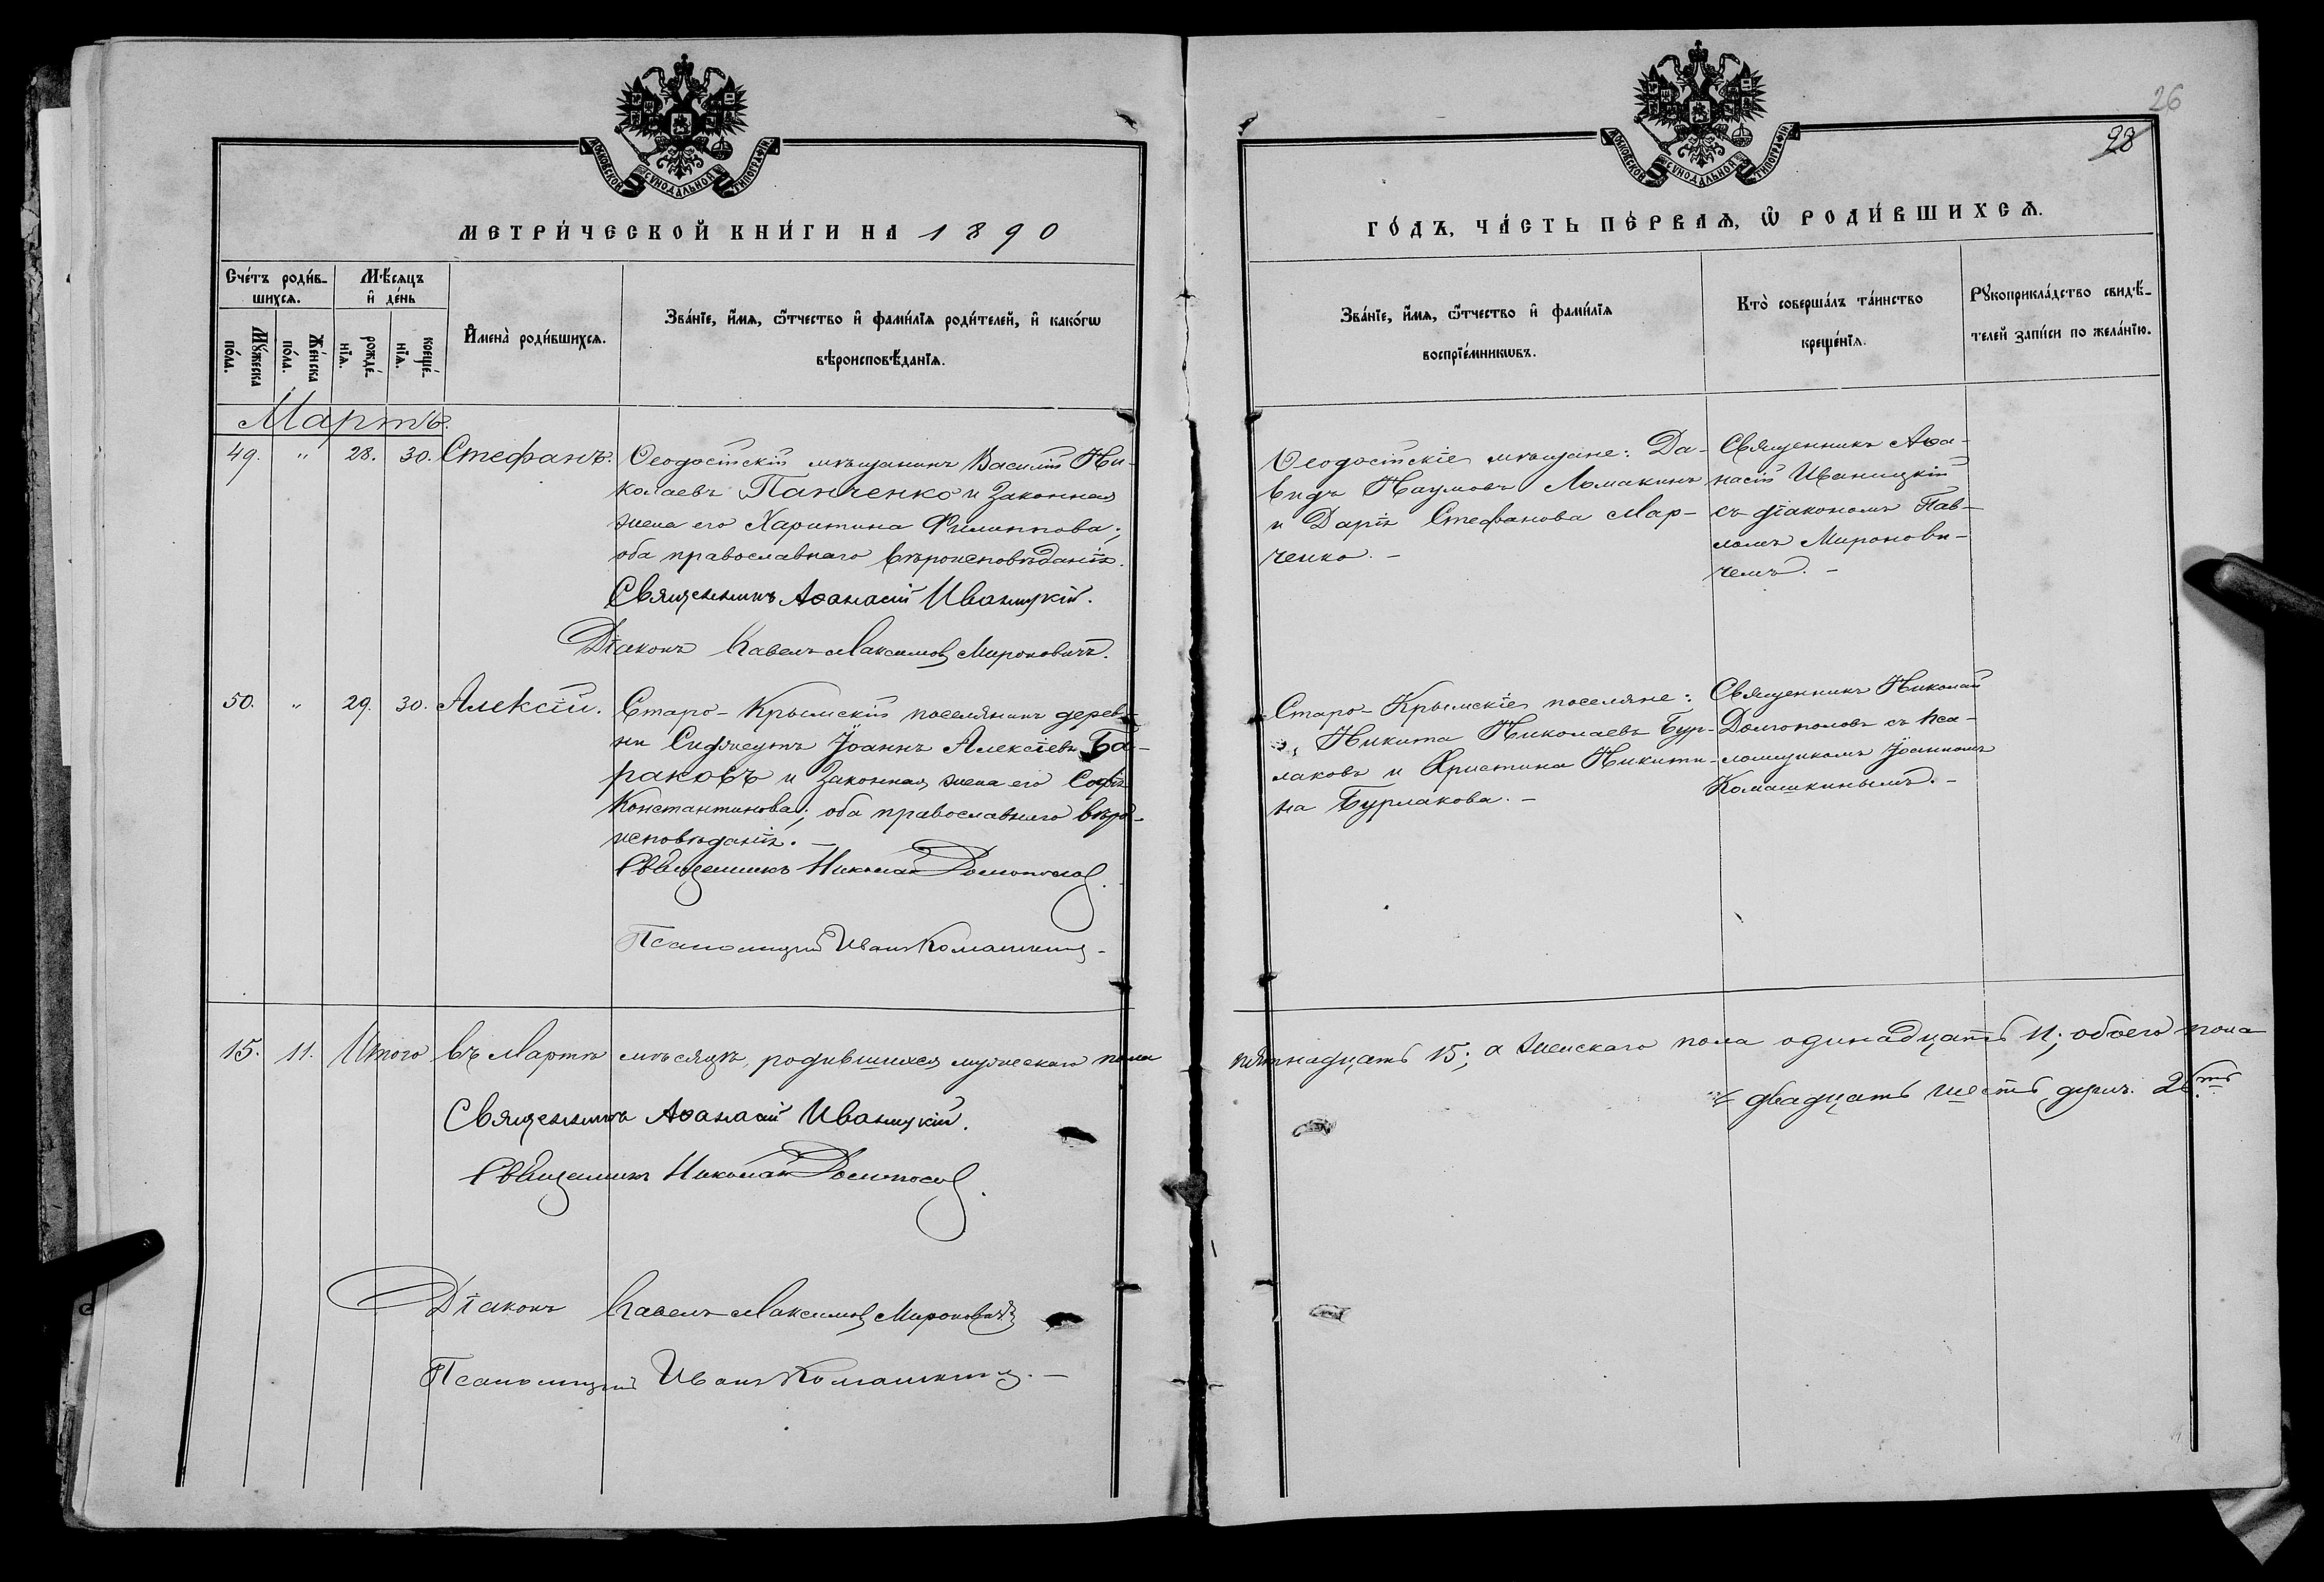 МОСКОВСКОЙ СѴНОДАЛЬНОЙ ТИПОГРАФІИ
МЕТРИ́ЧЕСКОЙ КНИ́ГИ НА 1890
Сче́тъ роди́в-
шихсѧ.
Мѣ́сѧцъ
и҆ де́нь
Мꙋ́жеска
по́ла.
Же́нска
по́ла.
рожде́-
нїѧ.
креще́-
нїѧ.
И҆мена̀ роди́вшихсѧ.
Зва́нїе, и҆́мѧ, ѻ҆́тчество и҆ фами́лїѧ роди́телей, и҆ како́гѡ
вѣроисповѣ́данїѧ.
Мартъ.
49. " 28. 30. Стефанъ. Ѳеодосійскій мѣщанинъ Василій Ни-
колаевъ Панченко и законная
жена его Харитина Филиппова;
оба православнаго вѣроисповѣданія.
Священникъ Аѳанасій Иваницкій.
Діаконъ Павелъ Максимов Мироновичъ.
50. " 29. 30. Алексій. Старо-Крымскій поселянинъ дерев-
ни Іоаннъ Алексіевъ Ба-
раковъ и законная жена его Софія
Константинова; оба православнаго вѣро-
исповѣданія. –
Священникъ Николай Долгополов.
Псаломщикъ Иванъ Комашкинъ -
15. 11. Итого въ Мартѣ мѣсяцѣ, родившихся мужескаго пола
Священникъ Аѳанасій Иваницкій.
Священникъ Николай Долгополов.
Діаконъ Павелъ Максимов Мироновичъ
Псаломщикъ Иванъ Комашкинъ. –
26
28
МОСКОВСКОЙ СѴНОДАЛЬНОЙ ТИПОГРАФІИ
ГО́ДЪ, ЧА́СТЬ ПЕ́РВАѦ, Ѡ҆ РОДИ́ВШИХСѦ.
Зва́нїе, и҆́мѧ, ѻ҆́тчество и҆ фами́лїѧ
воспрїе́мникѡвъ.
Кто̀ соверша́лъ та́инство
креще́нїѧ.
Рꙋкоприкла́дство свидѣ́-
телей за́писи по жела́нїю.
Ѳеодосійскіе мѣщане: Да-
видъ Наумовъ Ломакинъ
и Дарія Стефанова Мар-
ченко. –
Священникъ Аѳа-
насій Иваницкій
съ діакономъ Пав-
ломъ Миронови-
чемъ. –
Старо-Крымскіе поселяне:
Никита Николаевъ Бур-
лаковъ и Христина Никити-
на Бурлакова. –
Священникъ Николай
Долгополовъ съ пса-
ломщикомъ Іоанномъ
Комашкинымъ. –
пятнадцать 15; а женскаго пола одинадцать 11; обоего пола
двадцать шесть душъ. 26.ть